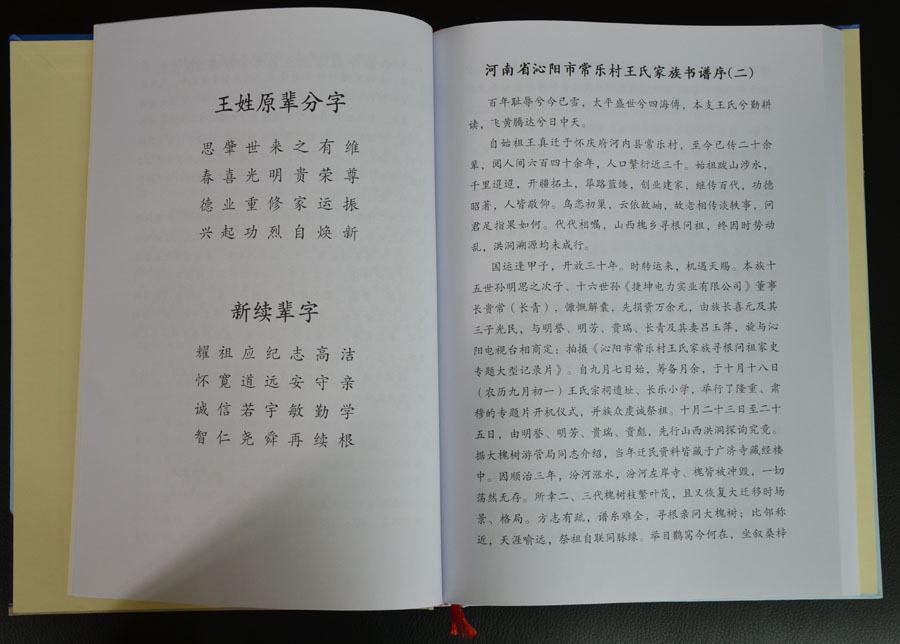 王姓原辈分字
思肇世来之有维
春喜光明贵荣尊
德业重修家运振
兴起功烈自焕新
新续辈字
耀祖应纪志高洁
怀宽道远安守亲
诚信若宇敏勤学
智仁尧舜再续根
河南省沁阳市常乐村王氏家族书谱序(二)
百年耻辱兮今已雪，太平盛世兮四海傅，本支王氏兮勤耕
读，飞黄腾达兮日中天。
自始祖王真迁于怀庆府河内县常乐村，至今已传二十余
辈，阅人间六百四十余年，人口繁衍近三千。始祖跋山涉水，
千里迢迢，开疆拓土，筚路蓝缕，创业建家，继传百代，功德
昭著，人皆敬仰。鸟恋初巢，云依故岫，故老相传谈轶事，问
君足指果如何。代代相嘱，山西槐乡寻根问祖，终因时势动
乱，洪洞溯源均未成行。
国运逢甲子，开放三十年。时转运来，机遇天赐。本族十
五世孙明思之次子、十六世孙《捷坤电力实业有限公司》董事
长贵常（长青），慷慨解囊，先捐资万余元，由族长喜元及其
三子光民，与明誉、明芳、贵瑞、长青及其妻吕玉萍，旋与沁
阳电视台相商定：拍摄《沁阳市常乐村王氏家族寻根问祖家史
专题大型记录片》。自九月七日始，筹备月余，于十月十八日
（农历九月初一）王氏宗祠遗址、长乐小学，举行了隆重、肃
穆的专题片开机仪式，并族众虔诚祭祖。十月二十三日至二十
五日，由明誉、明芳、贵瑞、贵彪，先行山西洪洞探询究竟。
据大槐树游管局同志介绍，当年迁民资料皆藏于广济寺藏经楼
中。因顺治三年，汾河涨水，汾河左岸寺、槐皆被冲毁，一切
荡然无存。所幸二、三代槐树枝繁叶茂，且又恢复大迁移时场
景、格局。方志有疏，谱系难全，寻根亲问大槐树；比邻称
近，天涯喻远，祭祖自联同脉缘。举目鹳窝今何在，坐叙桑梓